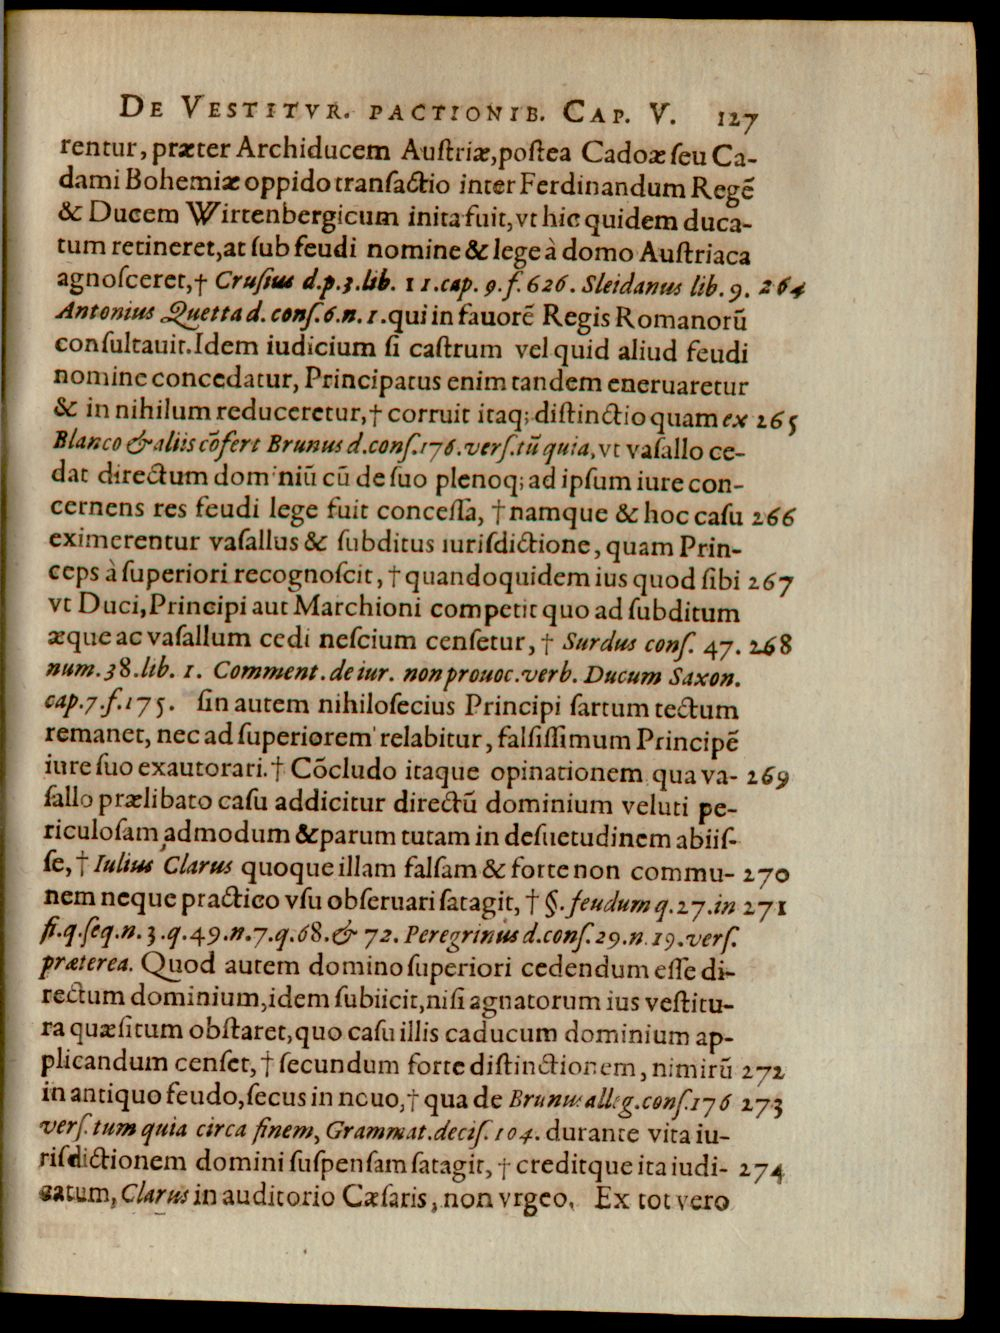 DE VESTITVR. PACTIONIB. CAP. V. 127
rentur, præter Archiducem Auſtriæ, poſtea Cadoæ ſeu Ca-
dami Bohemiæ oppido tranſactio inter Ferdinandum Regẽ
& Ducem Wirtenbergicum inita fuit, vt hic quidem duca-
tum retineret, at ſub feudi nomine & lege à domo Auſtriaca
agnoſceret, † Cruſius d.p.3.lib. 11.cap. 9.f. 626. Sleidanus lib. 9. 264
Antonius Quetta d. conſ.6.n.1. qui in fauorẽ Regis Romanorũ
conſultauit. Idem iudicium ſi caſtrum vel quid aliud feudi
nomine concedatur, Principatus enim tandem eneruaretur
& in nihilum reduceretur, † corruit itaq; diſtinctio quam ex 265
Blanco & aliis cõfert Brunus d.conſ.176.verſ.tũ quia, vt vaſallo ce-
dat directum dominiũ cũ de ſuo plenoq; ad ipſum iure con-
cernens res feudi lege fuit conceſſa, † namque & hoc caſu 266
eximerentur vaſallus & ſubditus iurisdictione, quam Prin-
ceps à ſuperiori recognoſcit, † quandoquidem ius quod ſibi 267
vt Duci, Principi aut Marchioni competit quo ad ſubditum
æque ac vaſallum cedi neſcium cenſetur, † Surdus conſ. 47. 268
num.38.lib. 1. Comment. de iur. non prouoc. verb. Ducum Saxon.
cap.7.f.175. ſin autem nihiloſecius Principi ſartum tectum
remanet, nec ad ſuperiorem relabitur, falſiſſimum Principẽ
iure ſuo exautorari. † Cõcludo itaque opinationem qua va- 269
ſallo prælibato caſu addicitur directũ dominium veluti pe-
riculoſam admodum & parum tutam in deſuetudinem abiiſ-
ſe, † Iulius Clarus quoque illam falſam & forte non commu- 270
nem neque practico vſu obſeruari ſatagit, † §. feudum q.27.in 271
fi.q.ſeq.n. 3.q.49.n.7.q.68.& 72. Peregrinus d.conſ.29.n.19.verſ.
præterea. Quod autem domino ſuperiori cedendum eſſe di-
rectum dominium, idem ſubiicit, niſi agnatorum ius veſtitu-
ra quæſitum obſtaret, quo caſu illis caducum dominium ap-
plicandum cenſet, † ſecundum forte diſtinctionem, nimirũ 272
in antiquo feudo, ſecus in nouo, † qua de Brunus alleg.conſ.176 273
verſ.tum quia circa finem, Grammat.deciſ.104. durante vita iu-
riſdictionem domini ſuſpenſam ſatagit, † creditque ita iudi- 274
catum, Clarus in auditorio Cæſaris, non vrgeo. Ex tot vero